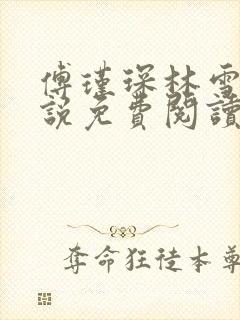 傅瑾琛林雪
説免費閱讀
奪命狂徒本尊